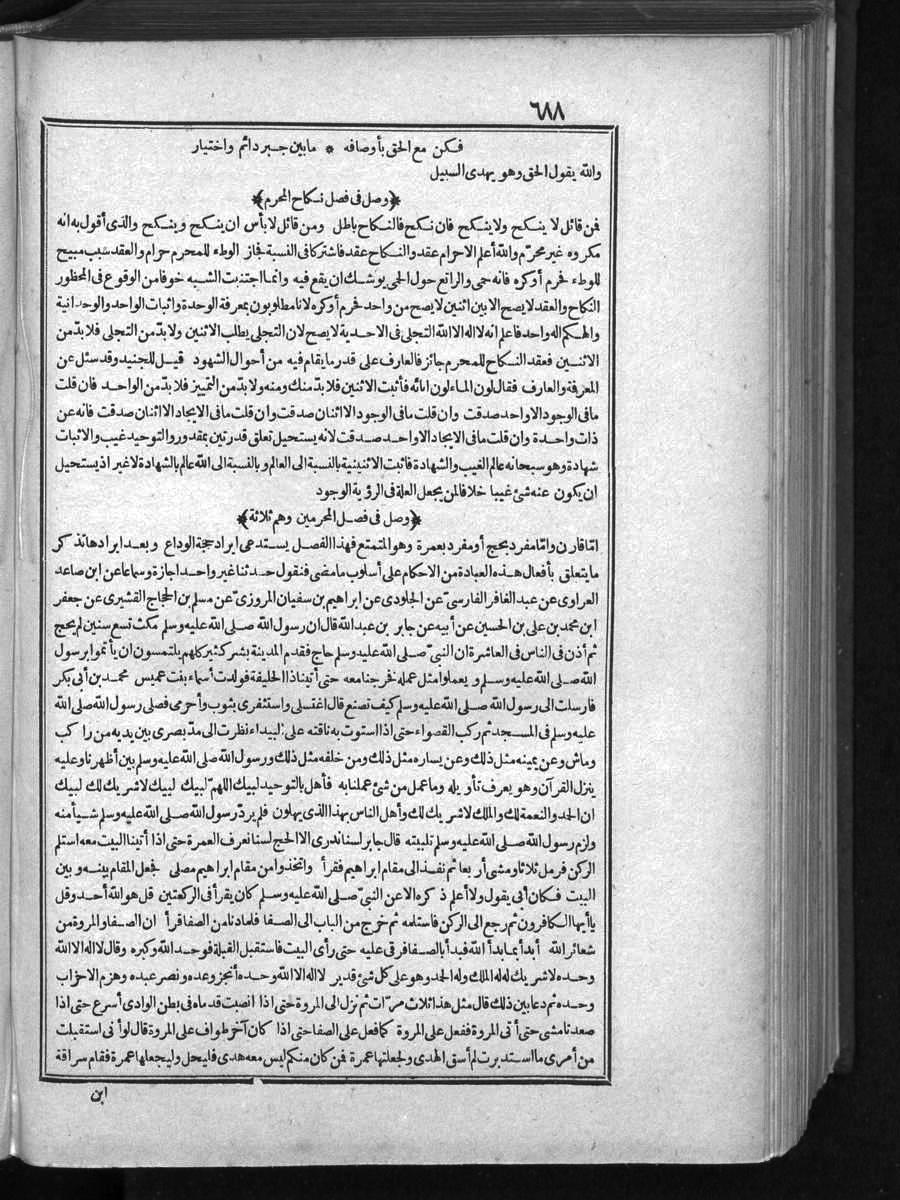 ٦٨٨
فكن مع الحق بأوصافه * ما بين جبر دائم واختيار
والله يقول الحق وهو يهدى السبيل
﴿وصل فى فصل نكاح المحرم﴾
فمن قائل لا ينكح ولا ينكح فان نكح فالنكاح باطل ومن قائل لا بأس ان ينكح وينكح والذى أقول به انه
مكروه غير محرّم والله أعلم الاحرام عقد والنكاح عقد فاشتركا فى النسبة فجاز الوطء للمحرم حرام والعقد سبب مبيح
للوطء فحرم أوكره فانه حمى والراتع حول الحمى يوشك ان يقع فيه وانما اجتنبت الشبه خوفا من الوقوع فى المحظور
النكاح والعقد لا يصح الا بين اثنين لا يصح من واحد فحرم أوكره لانا مطلوبون بمعرفة الوحدة واثبات الواحد والوحدانية
والهكم اله واحد فاعلم انه لا اله الا الله التجلى فى الاحدية لا يصح لان التجلى يطلب الاثنين ولا بدّ من التجلى فلا بدّ من
الاثنين فعقد النكاح للمحرم جائز فالعارف على قدر ما يقام فيه من أحوال الشهود قيل للجنيد وقد سئل عن
المعرفة والعارف فقال لون الماء لون انائه فأثبت الاثنين فلا بدّ منك ومنه ولا بدّ من التمييز فلا بدّ من الواحد فان قلت
ما فى الوجود الا واحد صدقت وان قلت ما فى الوجود الا اثنان صدقت وان قلت ما فى الايجاد الا اثنان صدقت فانه عن
ذات واحدة وان قلت ما فى الايجاد الا واحد صدقت لانه يستحيل تعلق قدرتين بمقدور والتوحيد غيب والاثبات
شهادة وهو سبحانه عالم الغيب والشهادة فاثبت الاثنينية بالنسبة الى العالم وبالنسبة الى الله عالم بالشهادة لا غير اذ يستحيل
ان يكون عنه شئ غيبا خلافا لمن يجعل العلة فى الرؤية الوجود
﴿وصل فى فصل المحرمين وهم ثلاثة﴾
امّا قارن وامّا مفرد بحج أو مفرد بعمرة وهو المتمتع فهذا الفصل يستدعى ايراد حجة الوداع وبعد ايرادها نذكر
ما يتعلق بأفعال هذه العبادة من الاحكام على أسلوب ما مضى فنقول حدثنا غير واحد اجازة وسماعا عن ابن صاعد
العراوى عن عبد الغافر الفارسىّ عن الجلودى عن ابراهيم بن سفيان المروزىّ عن مسلم بن الحجاج القشيرى عن جعفر
ابن محمد بن على بن الحسين عن أبيه عن جابر بن عبد الله قال ان رسول الله صلى الله عليه وسلم مكث تسع سنين لم يحج
ثم أذن فى الناس فى العاشرة ان النبىّ صلى الله عليه وسلم حاج فقدم المدينة بشر كثير كلهم يلتمسون ان يأتموا برسول
الله صلى الله عليه وسلم ويعملوا مثل عمله فخرجنا معه حتى أتينا ذا الحليفة فولدت أسماء بنت عميس محمد بن أبى بكر
فارسلت الى رسول الله صلى الله عليه وسلم كيف نصنع قال اغتسلى واستثفرى بثوب وأحرمى فصلى رسول الله صلى الله
عليه وسلم فى المسجد ثم ركب القصواء حتى اذا استوت به ناقته على البيداء نظرت الى مدّ بصرى بين يديه من راكب
وماش وعن يمينه مثل ذلك وعن يساره مثل ذلك ومن خلفه مثل ذلك ورسول الله صلى الله عليه وسلم بين أظهرنا وعليه
ينزل القرآن وهو يعرف تأويله وما عمل من شئ عملنا به فأهل بالتوحيد لبيك اللهمّ لبيك لبيك لا شريك لك لبيك
ان الحمد والنعمة لك والملك لا شريك لك وأهل الناس بهذا الذى يهلون فلم يردّ رسول الله صلى الله عليه وسلم شيأ منه
ولزم رسول الله صلى الله عليه وسلم تلبيته قال جابر لسنا ندرى الا الحج لسنا نعرف العمرة حتى اذا أتينا البيت معه استلم
الركن فرمل ثلاثا ومشى أربعا ثم نفذ الى مقام ابراهيم فقرأ واتخذوا من مقام ابراهيم مصلى فجعل المقام بينه وبين
البيت فكان أبى يقول ولا أعلم ذكره الا عن النبىّ صلى الله عليه وسلم كان يقرأ فى الركعتين قل هو الله أحد وقل
يا أيها الكافرون ثم رجع الى الركن فاستلمه ثم خرج من الباب الى الصفا فلما دنا من الصفا قرأ ان الصفا والمروة من
شعائر الله أبدأ بما بدأ الله فبدأ بالصفا فرقى عليه حتى رأى البيت فاستقبل القبلة فوحد الله وكبره وقال لا اله الا الله
وحده لا شريك له له الملك وله الحمد وهو على كل شئ قدير لا اله الا الله وحده أنجز وعده ونصر عبده وهزم الاحزاب
وحده ثم دعا بين ذلك قال مثل هذا ثلاث مرّات ثم نزل الى المروة حتى اذا انصبت قدماه فى بطن الوادى أسرع حتى اذا
صعدنا مشى حتى أتى المروة ففعل على المروة كما فعل على الصفا حتى اذا كان آخر طواف على المروة قال لو أنى استقبلت
من أمرى ما استدبرت لم أسق الهدى ولجعلتها عمرة فمن كان منكم ليس معه هدى فليحل وليجعلها عمرة فقام سراقة
ابن